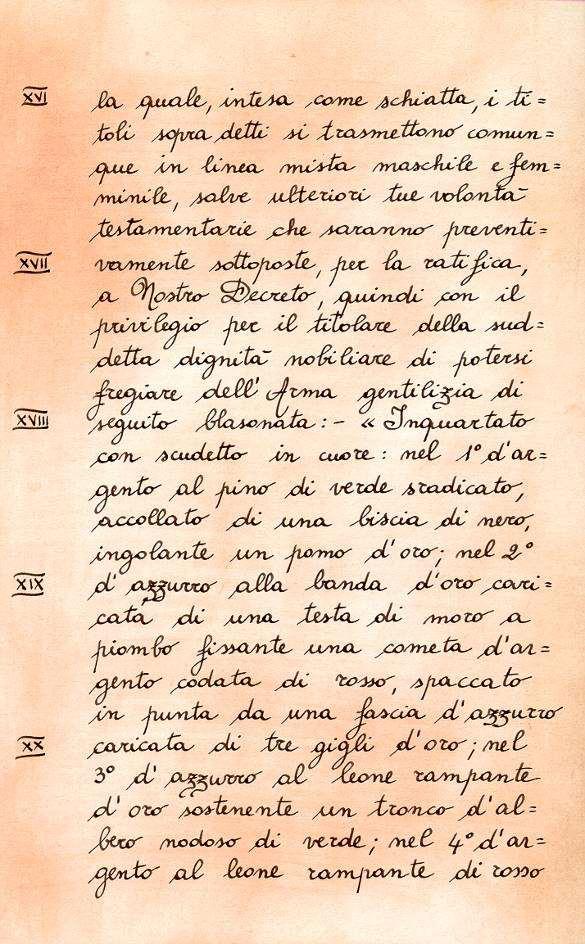 XVI la quale, intesa come schiatta, i ti=
toli sopra detti si trasmettono comun=
que in linea mista maschile e fem=
minile, salve ulteriori tue volontà
testamentarie che saranno preventi=
XVII vamente sottoposte, per la ratifica,
a Nostro Decreto, quindi con il
privilegio per il titolare della sud=
detta dignità nobiliare di potersi
fregiare dell'Arma gentilizia di
XVIII seguito blasonata:- « Inquartato
con scudetto in cuore: nel 1° d'ar=
gento al pino di verde sradicato,
accollato di una biscia di nero,
ingolante un pomo d'oro; nel 2°
XIX d'azzurro alla banda d'oro cari=
cata di una testa di moro a
piombo fissante una cometa d'ar=
gento codata di rosso, spaccato
in punta da una fascia d'azzurro
XX caricata di tre gigli d'oro; nel
3° d'azzurro al leone rampante
d'oro sostenente un tronco d'al=
bero nodoso di verde; nel 4° d'ar=
gento al leone rampante di rosso